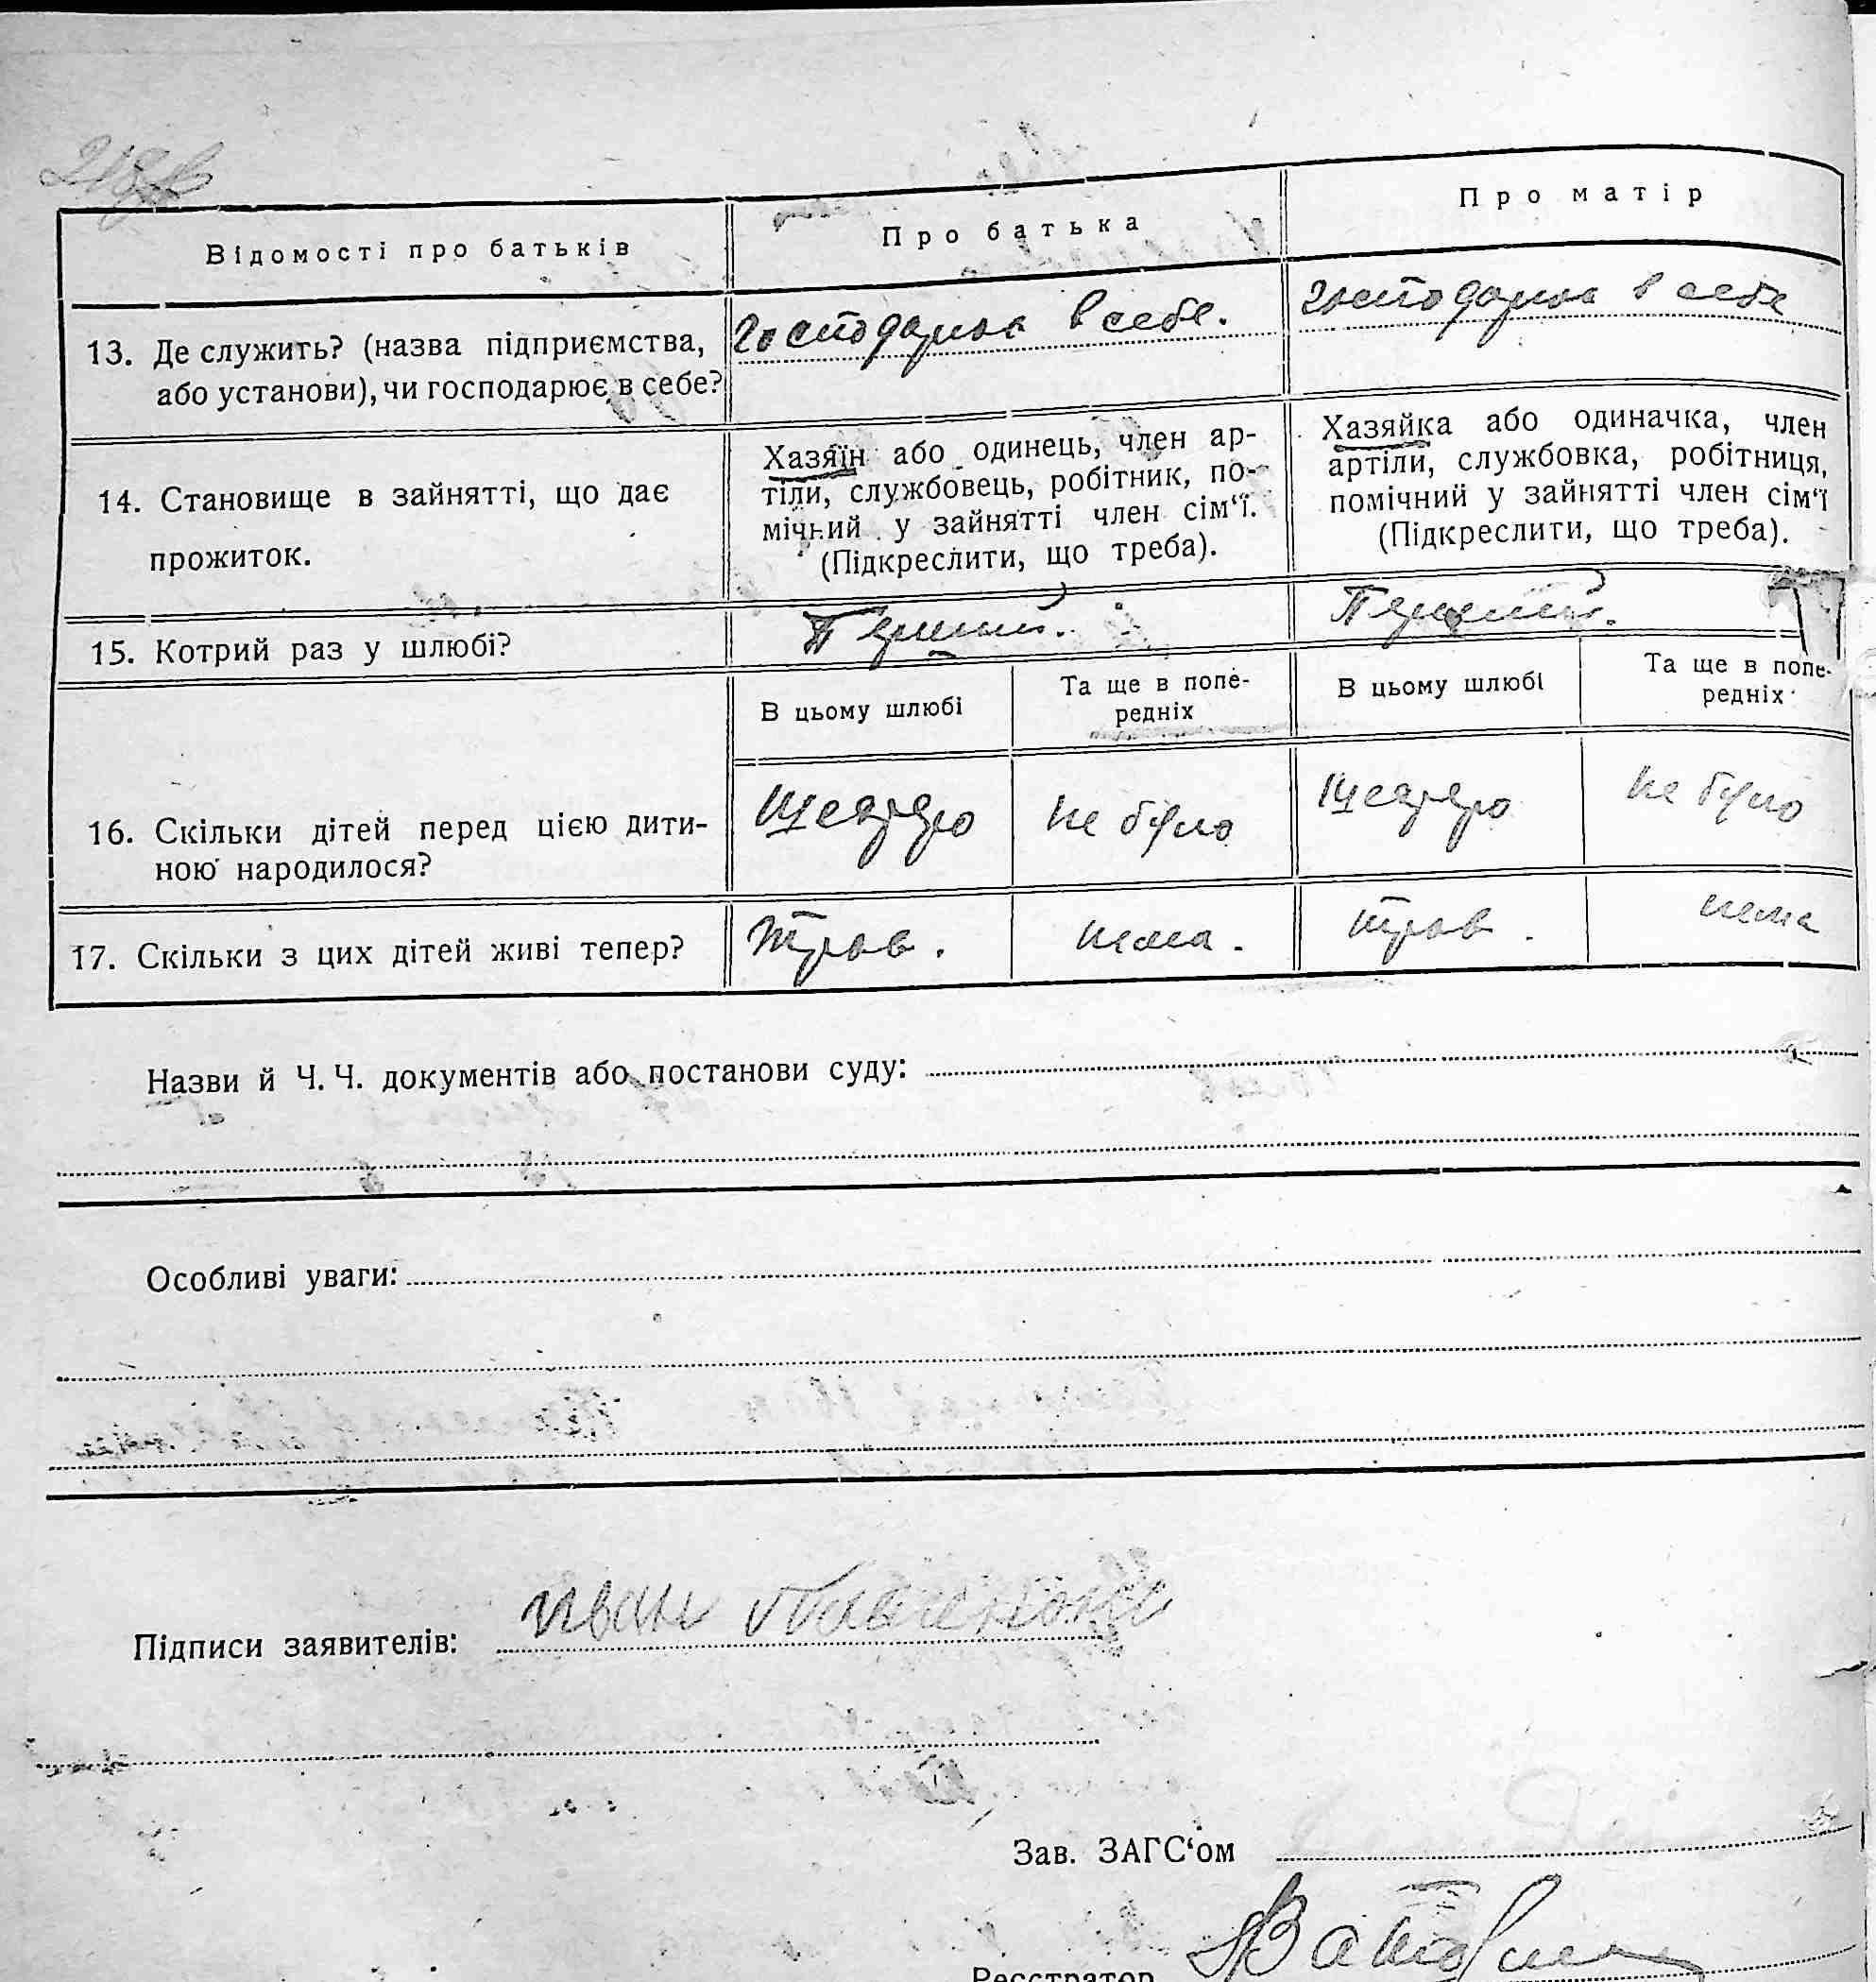 Відомості про батьків
Про батька
Про матір
13. Де служить? (назва підприємства,
або установи), чи господарює в себе?
Господарює в себе.
господарює в себе
14. Становище в зайнятті, що дає
прожиток.
Хазяїн або одинець, член ар-
тіли, службовець, робітник, по-
мічний у зайнятті член сім‘ї.
(Підкреслити, що треба).
Хазяйка або одиначка, член
артіли, службовка, робітниця,
помічний у зайнятті член сім‘ї
(Підкреслити, що треба).
15. Котрий раз у шлюбі?
Перший.
Перший.
В цьому шлюбі
Та ще в попе-
редніх
В цьому шлюбі
Та ще в попе-
редніх
16. Скільки дітей перед цією дити-
ною народилося?
не було
не було
17. Скільки з цих дітей живі тепер?
нема.
нема
Назви й Ч. Ч. документів або постанови суду:
Особливі уваги:
Підписи заявителів:
Иван
Зав. ЗАГС‘ом
Реєстратор